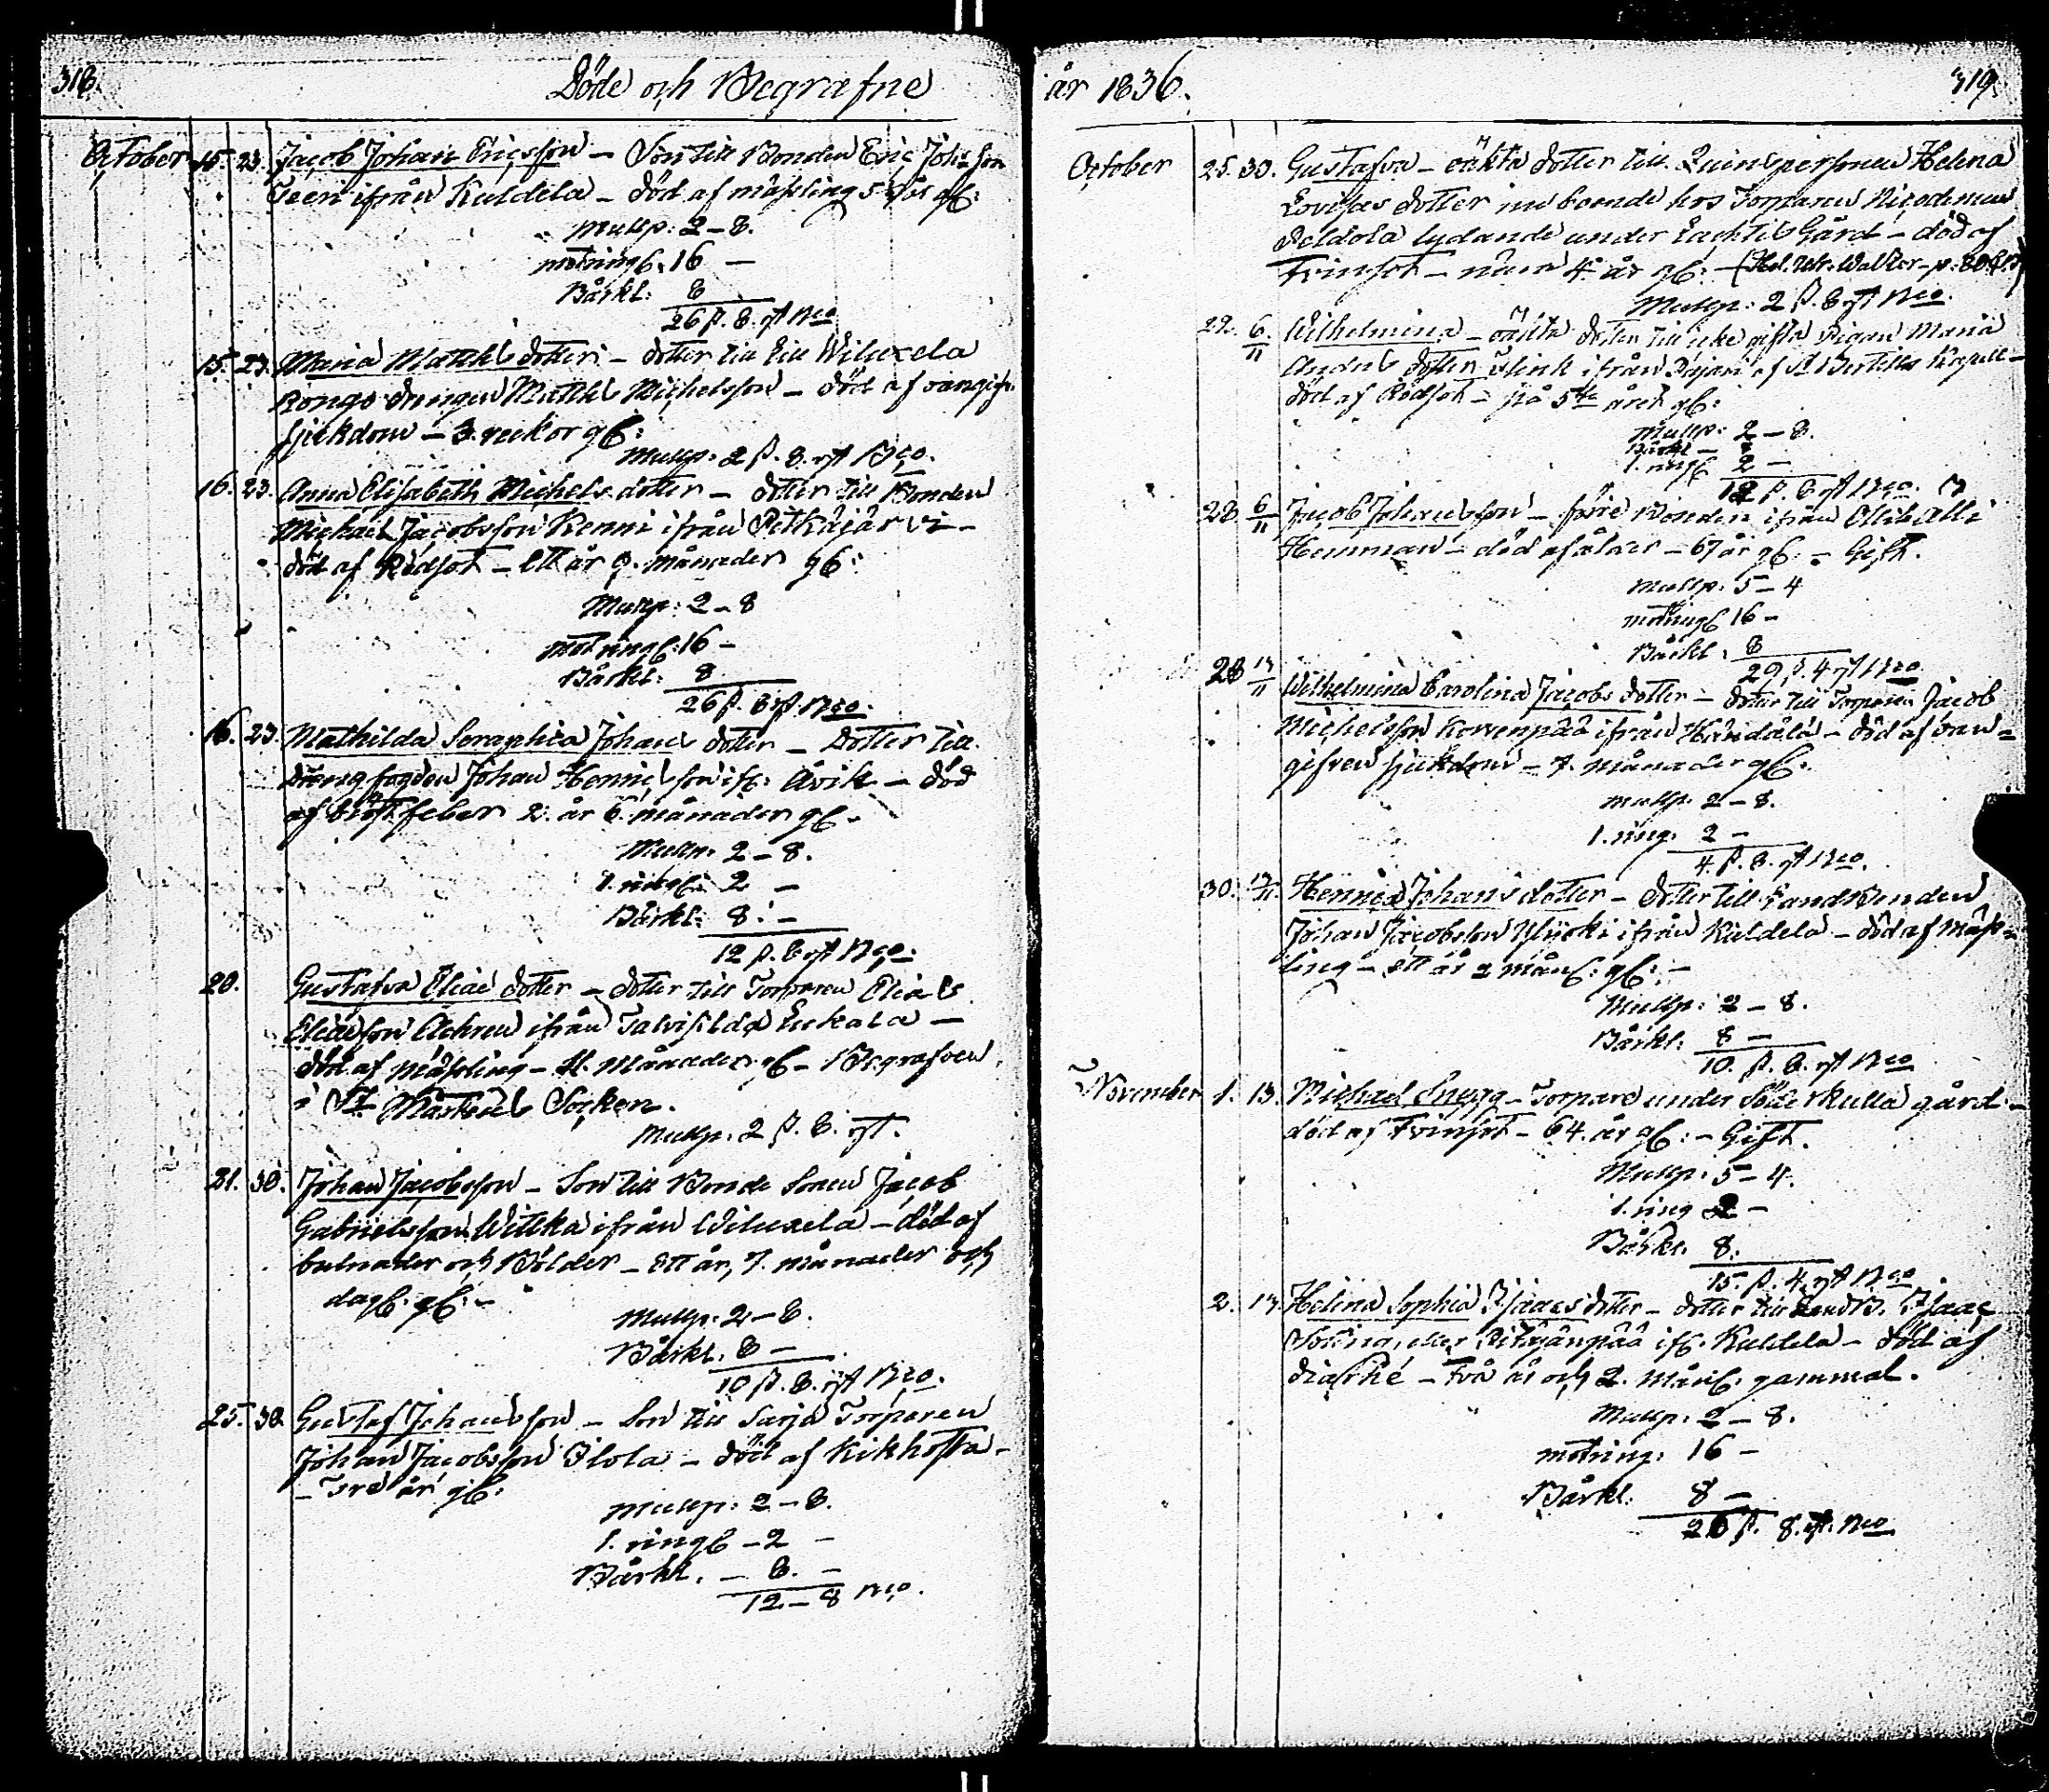 318.
Döde och Begrafne
October 15. 23. Jacob Johan Ericsson - Son till Bonden Eric Johansson
Teeri ifrån Kuldela - död af mäßling 5 år gl:
Mullp: 2 - 8.
motringl. 16 -
Bårkl: 8
26 ß. 8. rst Bco
15. 23. Maria Matthls dotter - dotter till Wiluxela
Rongo drängen Matthls Michelsson - död af oangifn
sjukdom - 3. veckor gl:
Mullp: 2 ß. 8. rst Bco.
16. 23. Anna Elisabeth Michels dotter - dotter till Bonden
Michael Jacobsson Kenni ifrån Petkäjärvi -
död af Rödsot - Ett år 9. månader gl:
Mullp: 2 - 8
motringl: 16 -
Bårkl: 8
26 ß. 8 rst. Bco.
16. 23. Mathilda Seraphia Johans dotter - Dotter till
drängfogden Johan Henricsson ifl: Åvik - död
af feber 2. år 6. månader gl.
Mullp. 2 - 8.
1. ringl: 2 -
Bårkl: 8. -
12 ß. 8 rst Bco.
20. Gustafva Eliæ dotter - dotter till Torparen Elias
Eliæson ifrån -
död af mäßling - 11. Månader gl - Begrafven
i St Mårtens Socken.
Mullp: 2 ß. 8. rst.
21. 30. Johan Jacobsson - Son till Bonde Sonen Jacob
Gabrielsson Wittka ifrån Wiluxela - död af
bulnader och Bölder - Ett år, 7. månader och
dagl: gl: -
Mullp: 2 - 8.
Bårkl. 8 -
10 ß. 8. rst Bco.
25. 30. Gustaf Johansson - Son till Sarja Torparen
Johan Jacobsson Ilola - död af Kikhosta -
- Tre år gl:
Mullp: 2 - 8.
1. ringl - 2 -
Bårkl. - 8. -
12. - 8 Bco.
år 1836.
319.
October 25. 30. Gustafva - oäkta dotter till Quinspersonen Helena
Lovisas dotter inneboende hos Torparen Nicodemus
Peldola lydande under Lachtis Gård - död af
Tvinsot - 4 år gl: -
Mullp: 2 ß. 8 rst Bco.
29. 6/11 Wilhelmina - oäkta dotter till icke gifta Pigan Maria
Anders dotter Flink ifrån Pajari af St Bertils Kapell -
död af Rödsot - på 5te året gl:
Mullp: 2 - 8.
Bårkl - 8
1. ringl 2 -
12 ß. 8 rst Bco.
28. 6/11 Jacob Johansson - förre Bonden ifrån
Hemman - död af ålder - 67 år gl: - Gift.
Mullp: 5 - 4
motringl 16 -
Bårkl: 8
29 ß. 4 rst Bco
28 13/11 Wilhelmina Carolina Jacobs dotter - dotter till Torparen Jacob
Michelsson Korvenpää ifrån - död af oan=
gifven sjukdom - 7. månader gl:
Mullp. 2 - 8.
1. ring: 2 -
4. ß. 8. rst Bco.
30. 13/11. Henrica Johans dotter - dotter till Landbonden
Johan Jacobsson ifrån Kuldela - död af Mäß=
ling - ett år 2 månl: gl: -
Mullp: 2 - 8.
Bårkl: 8 -
10. ß. 8. rst Bco
November 1. 13. Michael Snygg - Torpare under Söderkulla gård -
död af Tvinsot - 64. år gl: - Gift.
Mullp: 5 - 4.
1. ring 2 -
Bårkl. 8.
15. ß. 4. rst Bco
2. 13. Helena Sophia Isaacs dotter - dotter till LandB. Isaac
ifl. Kuldela - död af
diarhé - två år och 2. månl: gammal.
Mullp: 2 - 8.
motring: 16 -
Bårkl: 8 -
26 ß. 8. rst. Bco